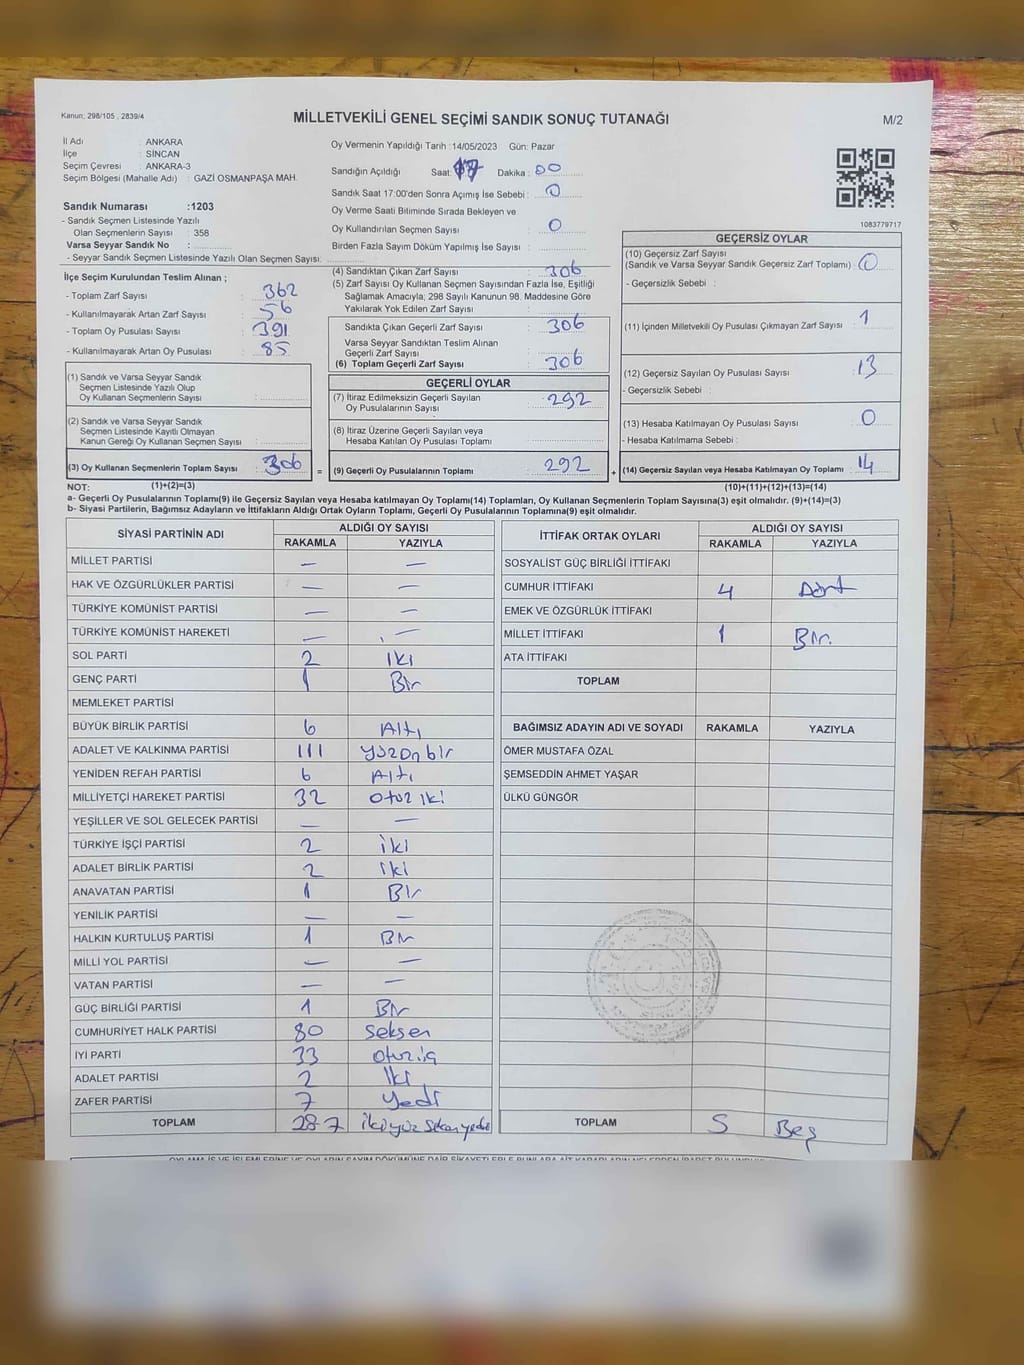 Kanun: 298/105 , 2839/4
MİLLETVEKİLİ GENEL SEÇİMİ SANDIK SONUÇ TUTANAĞI
M/2
İl Adı : ANKARA
İlçe : SİNCAN
Seçim Çevresi : ANKARA-3
Seçim Bölgesi (Mahalle Adı) : GAZİ OSMANPAŞA MAH.
Sandık Numarası :1203
- Sandık Seçmen Listesinde Yazılı
Olan Seçmenlerin Sayısı : 358
Varsa Seyyar Sandık No :
- Seyyar Sandık Seçmen Listesinde Yazılı Olan Seçmen Sayısı:
Oy Vermenin Yapıldığı Tarih :14/05/2023 Gün: Pazar
Sandığın Açıldığı Saat: 17 Dakika : 00
Sandık Saat 17:00'den Sonra Açımış İse Sebebi : 0
Oy Verme Saati Bitiminde Sırada Bekleyen ve
Oy Kullandırılan Seçmen Sayısı : 0
Birden Fazla Sayım Döküm Yapılmış İse Sayısı :
1083779717
İlçe Seçim Kurulundan Teslim Alınan ;
- Toplam Zarf Sayısı : 362
- Kullanılmayarak Artan Zarf Sayısı : 56
- Toplam Oy Pusulası Sayısı : 391
- Kullanılmayarak Artan Oy Pusulası : 85
(1) Sandık ve Varsa Seyyar Sandık
Seçmen Listesinde Yazılı Olup
Oy Kullanan Seçmenlerin Sayısı :
(2) Sandık ve Varsa Seyyar Sandık
Seçmen Listesinde Kayıtlı Olmayan
Kanun Gereği Oy Kullanan Seçmen Sayısı :
(3) Oy Kullanan Seçmenlerin Toplam Sayısı : 306
(1)+(2)=(3)
(4) Sandıktan Çıkan Zarf Sayısı : 306
(5) Zarf Sayısı Oy Kullanan Seçmen Sayısından Fazla İse, Eşitliği
Sağlamak Amacıyla; 298 Sayılı Kanunun 98. Maddesine Göre
Yakılarak Yok Edilen Zarf Sayısı :
Sandıkta Çıkan Geçerli Zarf Sayısı : 306
Varsa Seyyar Sandıktan Teslim Alınan
Geçerli Zarf Sayısı :
(6) Toplam Geçerli Zarf Sayısı : 306
GEÇERLİ OYLAR
(7) İtiraz Edilmeksizin Geçerli Sayılan
Oy Pusulalarının Sayısı : 292
(8) İtiraz Üzerine Geçerli Sayılan veya
Hesaba Katılan Oy Pusulası Toplamı :
= (9) Geçerli Oy Pusulalarının Toplamı : 292
GEÇERSİZ OYLAR
(10) Geçersiz Zarf Sayısı
(Sandık ve Varsa Seyyar Sandık Geçersiz Zarf Toplamı) : 0
- Geçersizlik Sebebi :
(11) İçinden Milletvekili Oy Pusulası Çıkmayan Zarf Sayısı : 1
(12) Geçersiz Sayılan Oy Pusulası Sayısı : 13
- Geçersizlik Sebebi :
(13) Hesaba Katılmayan Oy Pusulası Sayısı : 0
- Hesaba Katılmama Sebebi :
+ (14) Geçersiz Sayılan veya Hesaba Katılmayan Oy Toplamı : 14
(10)+(11)+(12)+(13)=(14)
NOT:
a- Geçerli Oy Pusulalarının Toplamı(9) ile Geçersiz Sayılan veya Hesaba katılmayan Oy Toplamı(14) Toplamları, Oy Kullanan Seçmenlerin Toplam Sayısına(3) eşit olmalıdır. (9)+(14)=(3)
b- Siyasi Partilerin, Bağımsız Adayların ve İttifakların Aldığı Ortak Oyların Toplamı, Geçerli Oy Pusulalarının Toplamına(9) eşit olmalıdır.
SİYASİ PARTİNİN ADI ALDIĞI OY SAYISI
RAKAMLA YAZIYLA
MİLLET PARTİSİ — —
HAK VE ÖZGÜRLÜKLER PARTİSİ — —
TÜRKİYE KOMÜNİST PARTİSİ — —
TÜRKİYE KOMÜNİST HAREKETİ — —
SOL PARTİ 2 iki
GENÇ PARTİ 1 Bir
MEMLEKET PARTİSİ
BÜYÜK BİRLİK PARTİSİ 6 Altı
ADALET VE KALKINMA PARTİSİ 111 yüzonbir
YENİDEN REFAH PARTİSİ 6 Altı
MİLLİYETÇİ HAREKET PARTİSİ 32 otuz iki
YEŞİLLER VE SOL GELECEK PARTİSİ — —
TÜRKİYE İŞÇİ PARTİSİ 2 iki
ADALET BİRLİK PARTİSİ 2 iki
ANAVATAN PARTİSİ 1 Bir
YENİLİK PARTİSİ — —
HALKIN KURTULUŞ PARTİSİ 1 Bir
MİLLİ YOL PARTİSİ — —
VATAN PARTİSİ — —
GÜÇ BİRLİĞİ PARTİSİ 1 Bir
CUMHURİYET HALK PARTİSİ 80 seksen
İYİ PARTİ 33 otuzüç
ADALET PARTİSİ 2 iki
ZAFER PARTİSİ 7 yedi
TOPLAM 287 ikiyüz seksenyedi
İTTİFAK ORTAK OYLARI ALDIĞI OY SAYISI
RAKAMLA YAZIYLA
SOSYALİST GÜÇ BİRLİĞİ İTTİFAKI
CUMHUR İTTİFAKI 4 Dört
EMEK VE ÖZGÜRLÜK İTTİFAKI
MİLLET İTTİFAKI 1 Bir.
ATA İTTİFAKI
TOPLAM
BAĞIMSIZ ADAYIN ADI VE SOYADI RAKAMLA YAZIYLA
ÖMER MUSTAFA ÖZAL
ŞEMSEDDİN AHMET YAŞAR
ÜLKÜ GÜNGÖR
TOPLAM 5 Beş